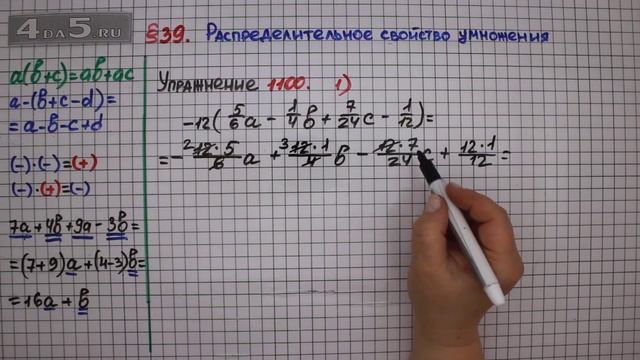 4DA5.RU
§39. Распределительное свойство умножения
a(b+c)=ab+ac
a-(b+c-d)=
=a-b-c+d
(-)·(-)=(+)
(-)·(+)=(-)
7a+4b+9a-3b=
=(7+9)a+(4-3)b=
=16a+b
Упражнение 1100. 1)
-12(5/6 a - 1/4 b + 7/24 c - 1/12)=
=- 2 12·5/6 a + 3 12·1/4 b - 12·7/24 c + 12·1/12 =